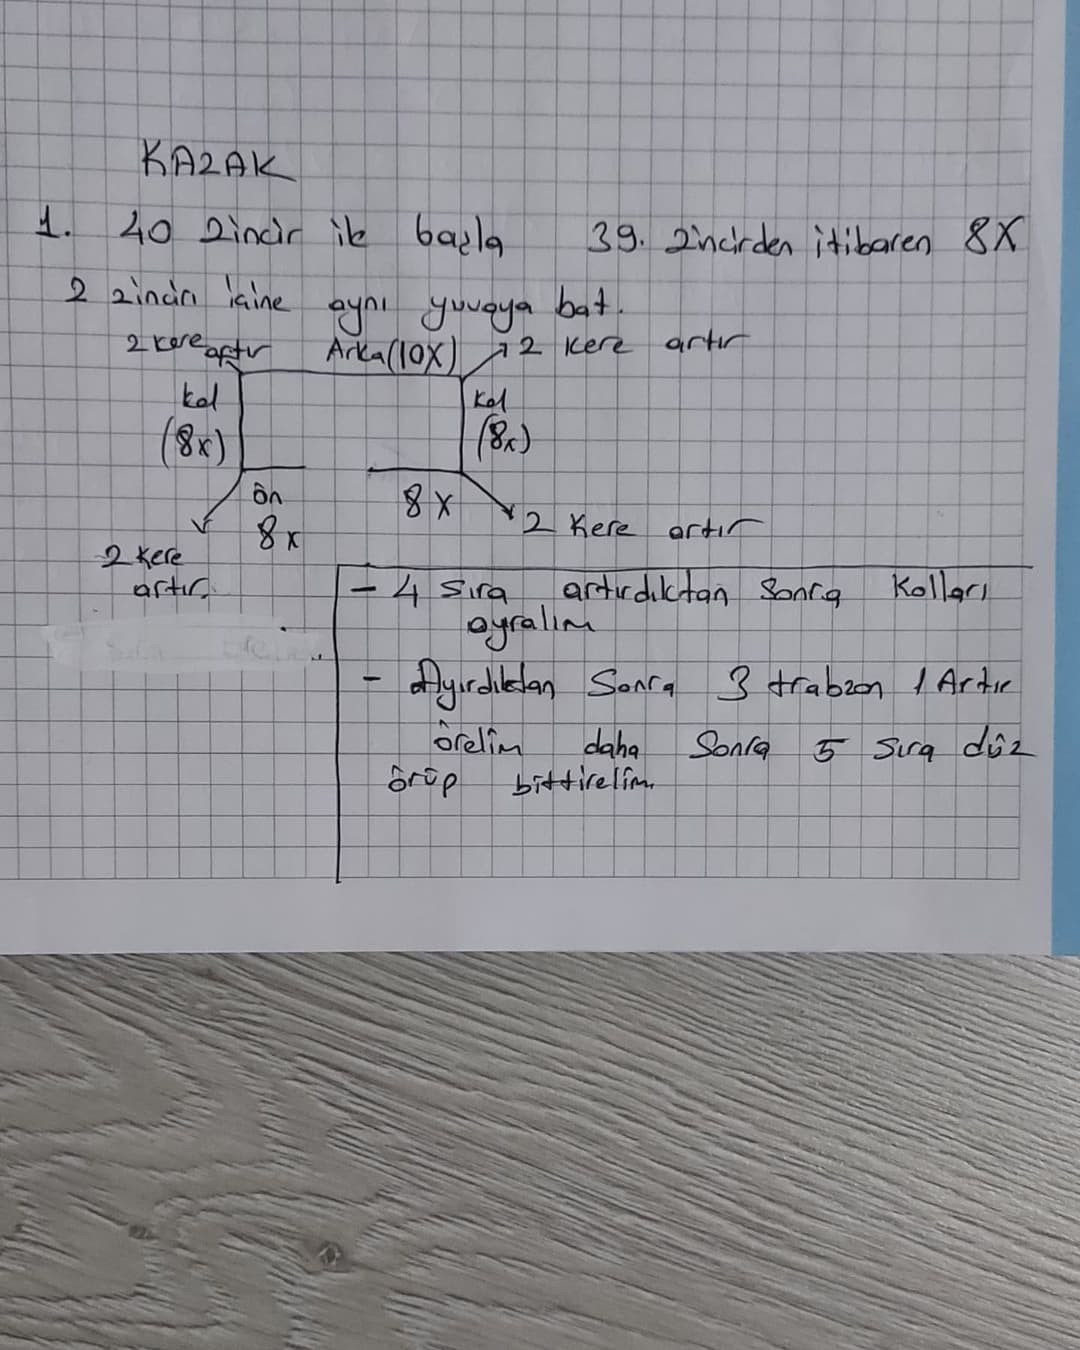 KAZAK
1. 40 zincir ile başla 39. zincirden itibaren 8X
2 zincir içine aynı yuvaya bat.
2 kere artır Arka(10X) 2 kere artır
kol kol
(8x) (8x)
ön 8x
8x 2 kere artır
2 kere
artır.
- 4 sıra artırdıktan sonra kolları
ayralım
- Ayırdıktan sonra 3 trabzon 1 Artır
örelim daha sonra 5 sıra düz
örüp bittirelim.